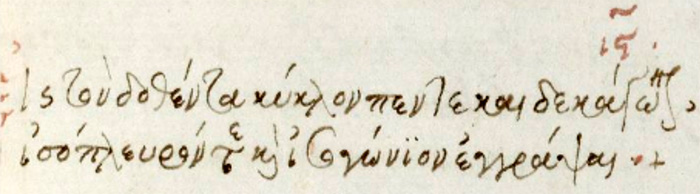 ιϛ ·
ἰς τὸν δοθέντα κύκλον πεντεκαιδεκάγων
ἰσόπλευρόν τε κ̀ ἰσογώνϊον ἐγγράψαι ·+